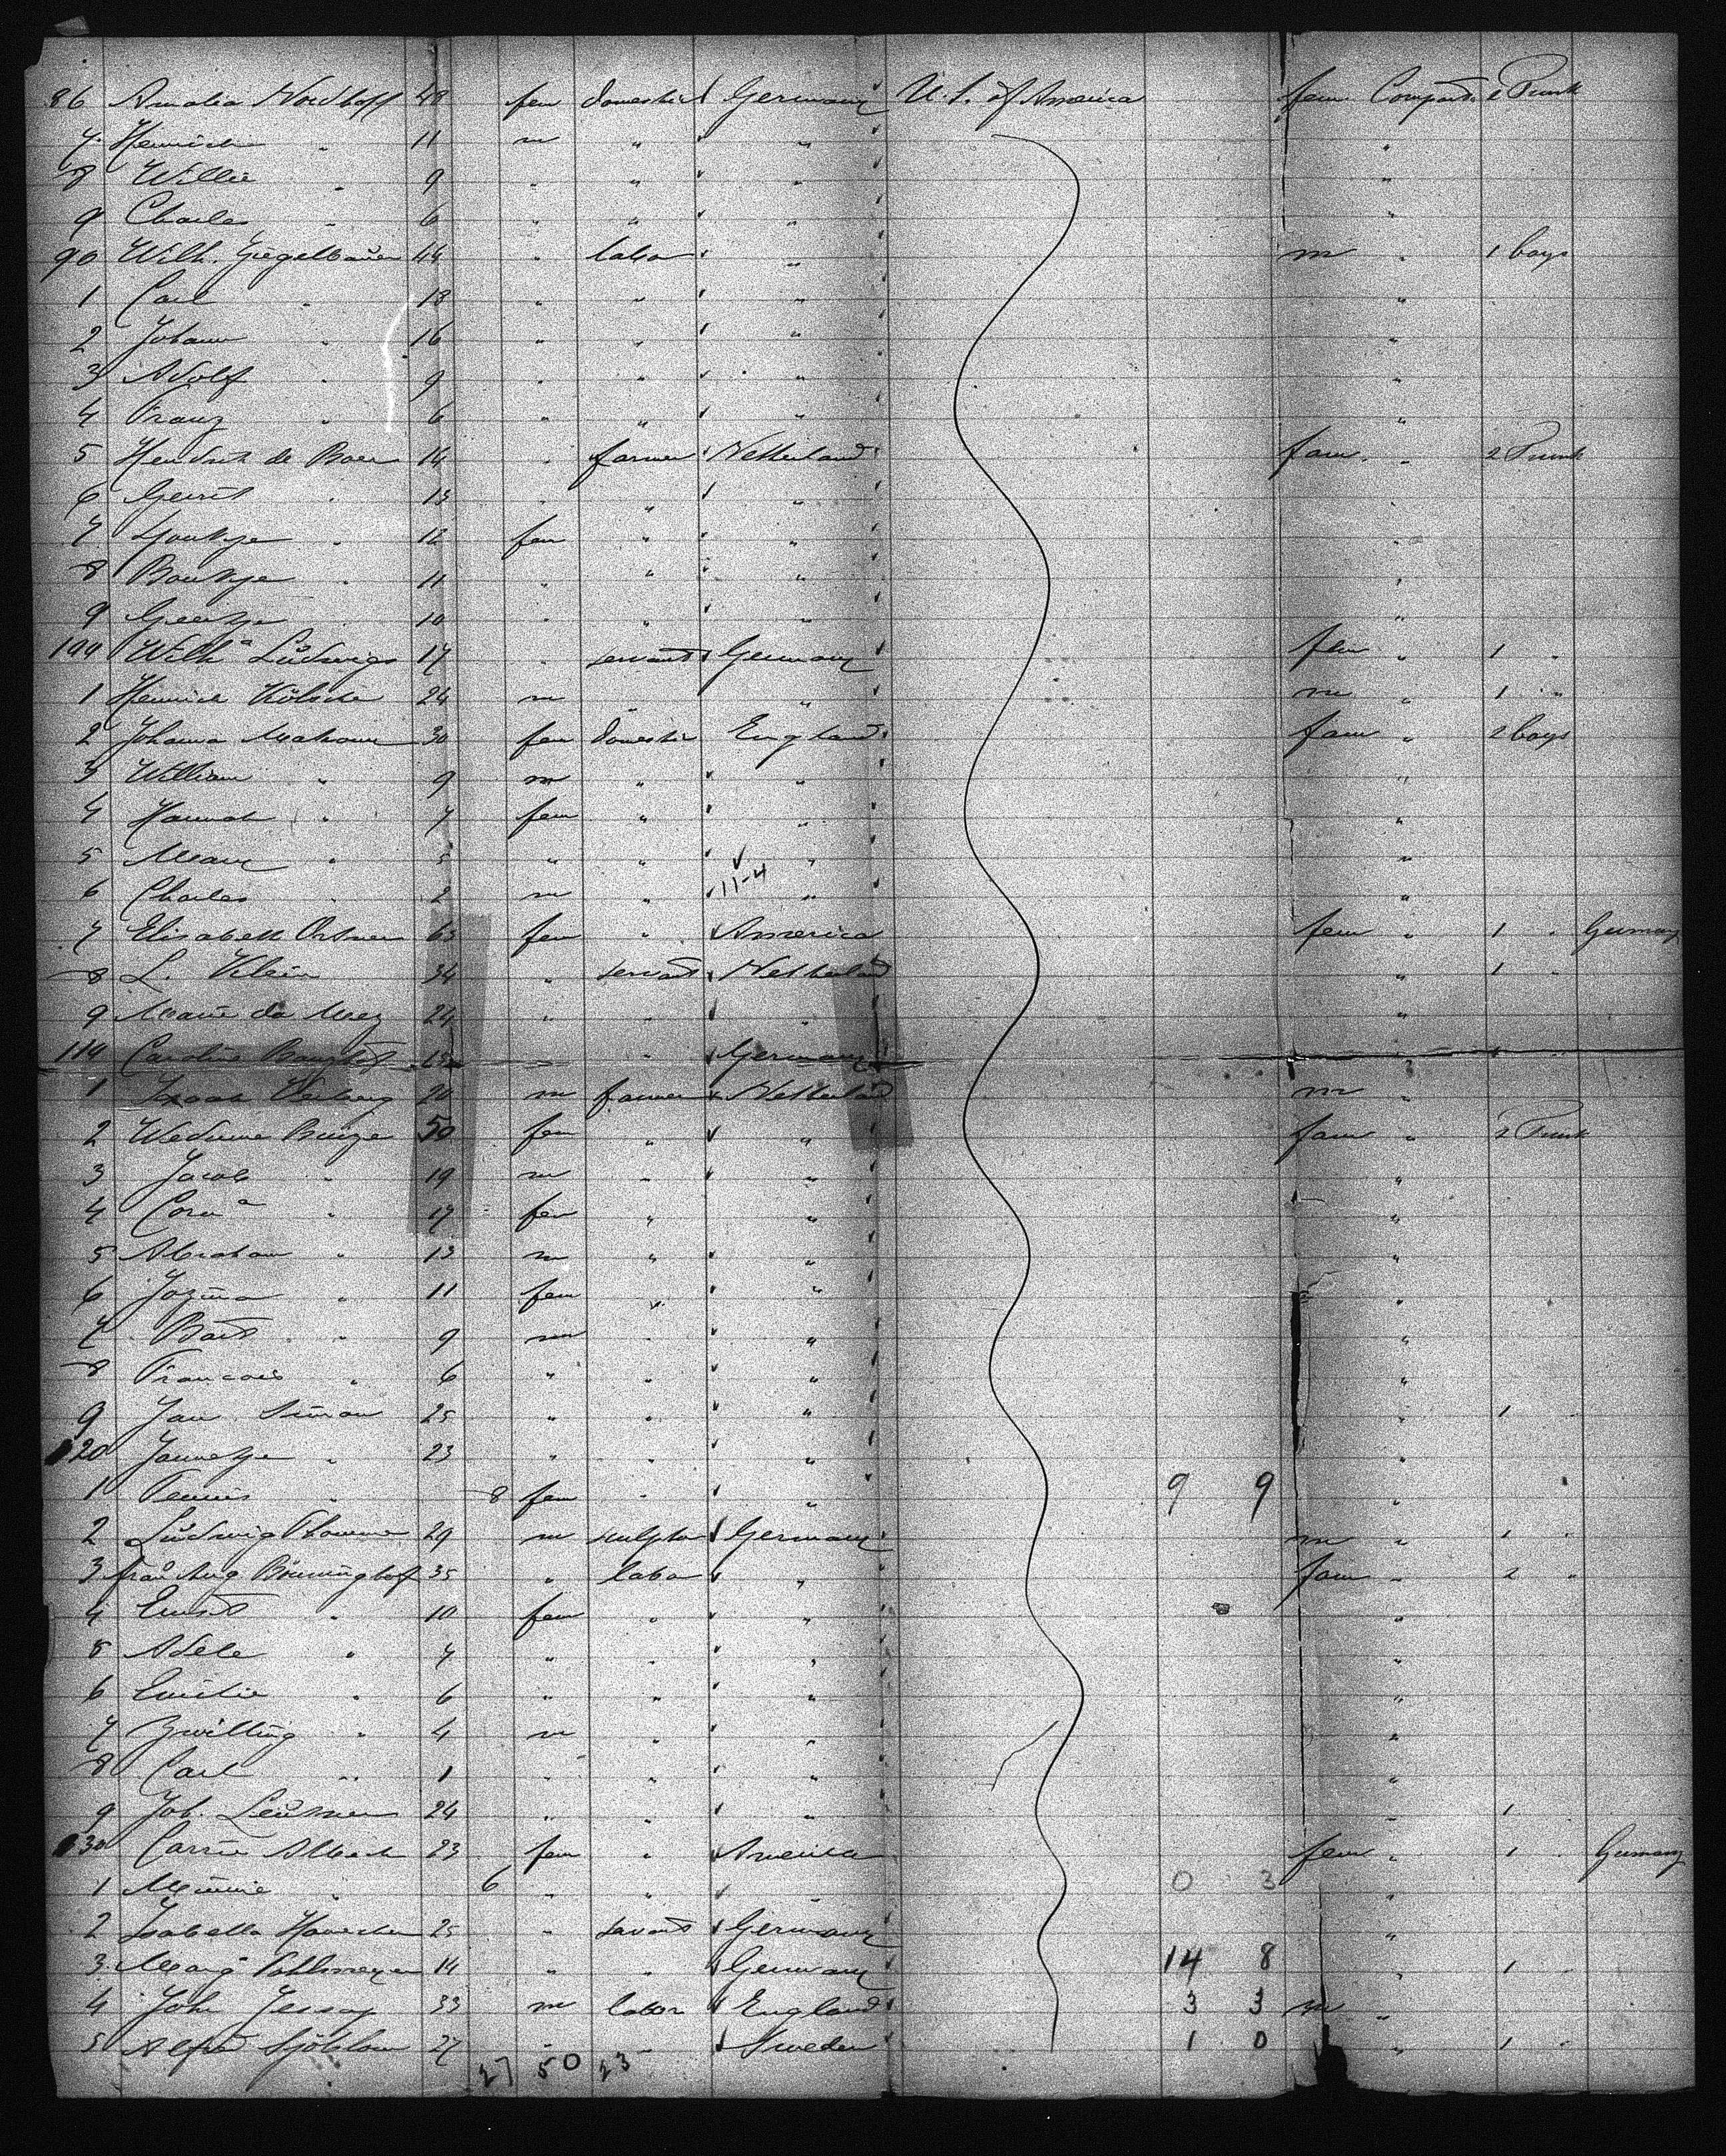 86 Amalia Nordhoff 48 fem domestic Germany U.S. of America fem. Compart. 2 Trunk
7 Heinrich " 11 m " "
8 Willie " 9 " " "
9 Charles " 6 " " "
90 Wilh. Ziegelbauer 44 " labor " m " 1 bags
1 Carl " 18 " " " "
2 Johann " 16 " " " "
3 Adolf " 9 " " " "
4 Franz " 6 " " " "
5 Hendrik de Boer 14 " farmer Netherland fam. " 2 Trunk
6 Gerrit " 13 " " "
7 " 12 fem " " "
8 Baukje " 11 " " " "
9 Geertje " 10 " " " "
100 Wilh^a Ludwigs 17 " servant Germany fem " 1 "
1 Heinrich Kölsche 24 m " " m " 1 "
2 Johanna 30 fem domestic England fam " 2 bags
3 William " 9 m " " "
4 Hannah " 7 fem " " "
5 Mary " 5 " " " "
6 Charles " 2 m " 11-4 " "
7 Elisabeth Ortner 63 fem " America fem " 1 " Germany
8 L. Klein 34 " servant Netherland " 1 "
9 Marie de Mey 24 " " " "
110 Caroline 65 " " Germany 1 "
1 Izaak Verburg 20 m farmer Netherland m "
2 Weduwe 50 fem " " fam " 2 Trunk
3 Jacob " 19 m " " "
4 Corn^a " 17 fem " " "
5 Abraham " 13 m " " "
6 Jozina " 11 fem " " "
7 Bart " 9 m " " "
8 Francois " 6 " " " "
9 Jan Simon 25 " " " " 1 "
120 Jannetje " 23 " " " "
1 Teunis " 8 fem " " 9 9 "
2 Ludwig Thomme 29 m sculptor Germany m " 1 "
3 Frau Aug Bönninghof 35 " labor " fam " 2 "
4 Ernst " 10 fem " " "
5 Adele " 7 " " " "
6 Emilie " 6 " " " "
7 Zwilling " 4 m " " "
8 Carl " 1 " " " "
9 Joh. 24 " " " " 1 "
130 Carrie 23 fem " America fem " 1 " Germany
1 Minnie " 6 " " " 0 3 "
2 Isabella 25 " servant Germany "
3 Marg^a Pohlmeyer 14 " " Germany 14 8 " 1 "
4 John Jessop 33 m labor England 3 3 m "
5 Alfred Sjöblom 27 " " Sweden 1 0 " 1 "
27 50 23